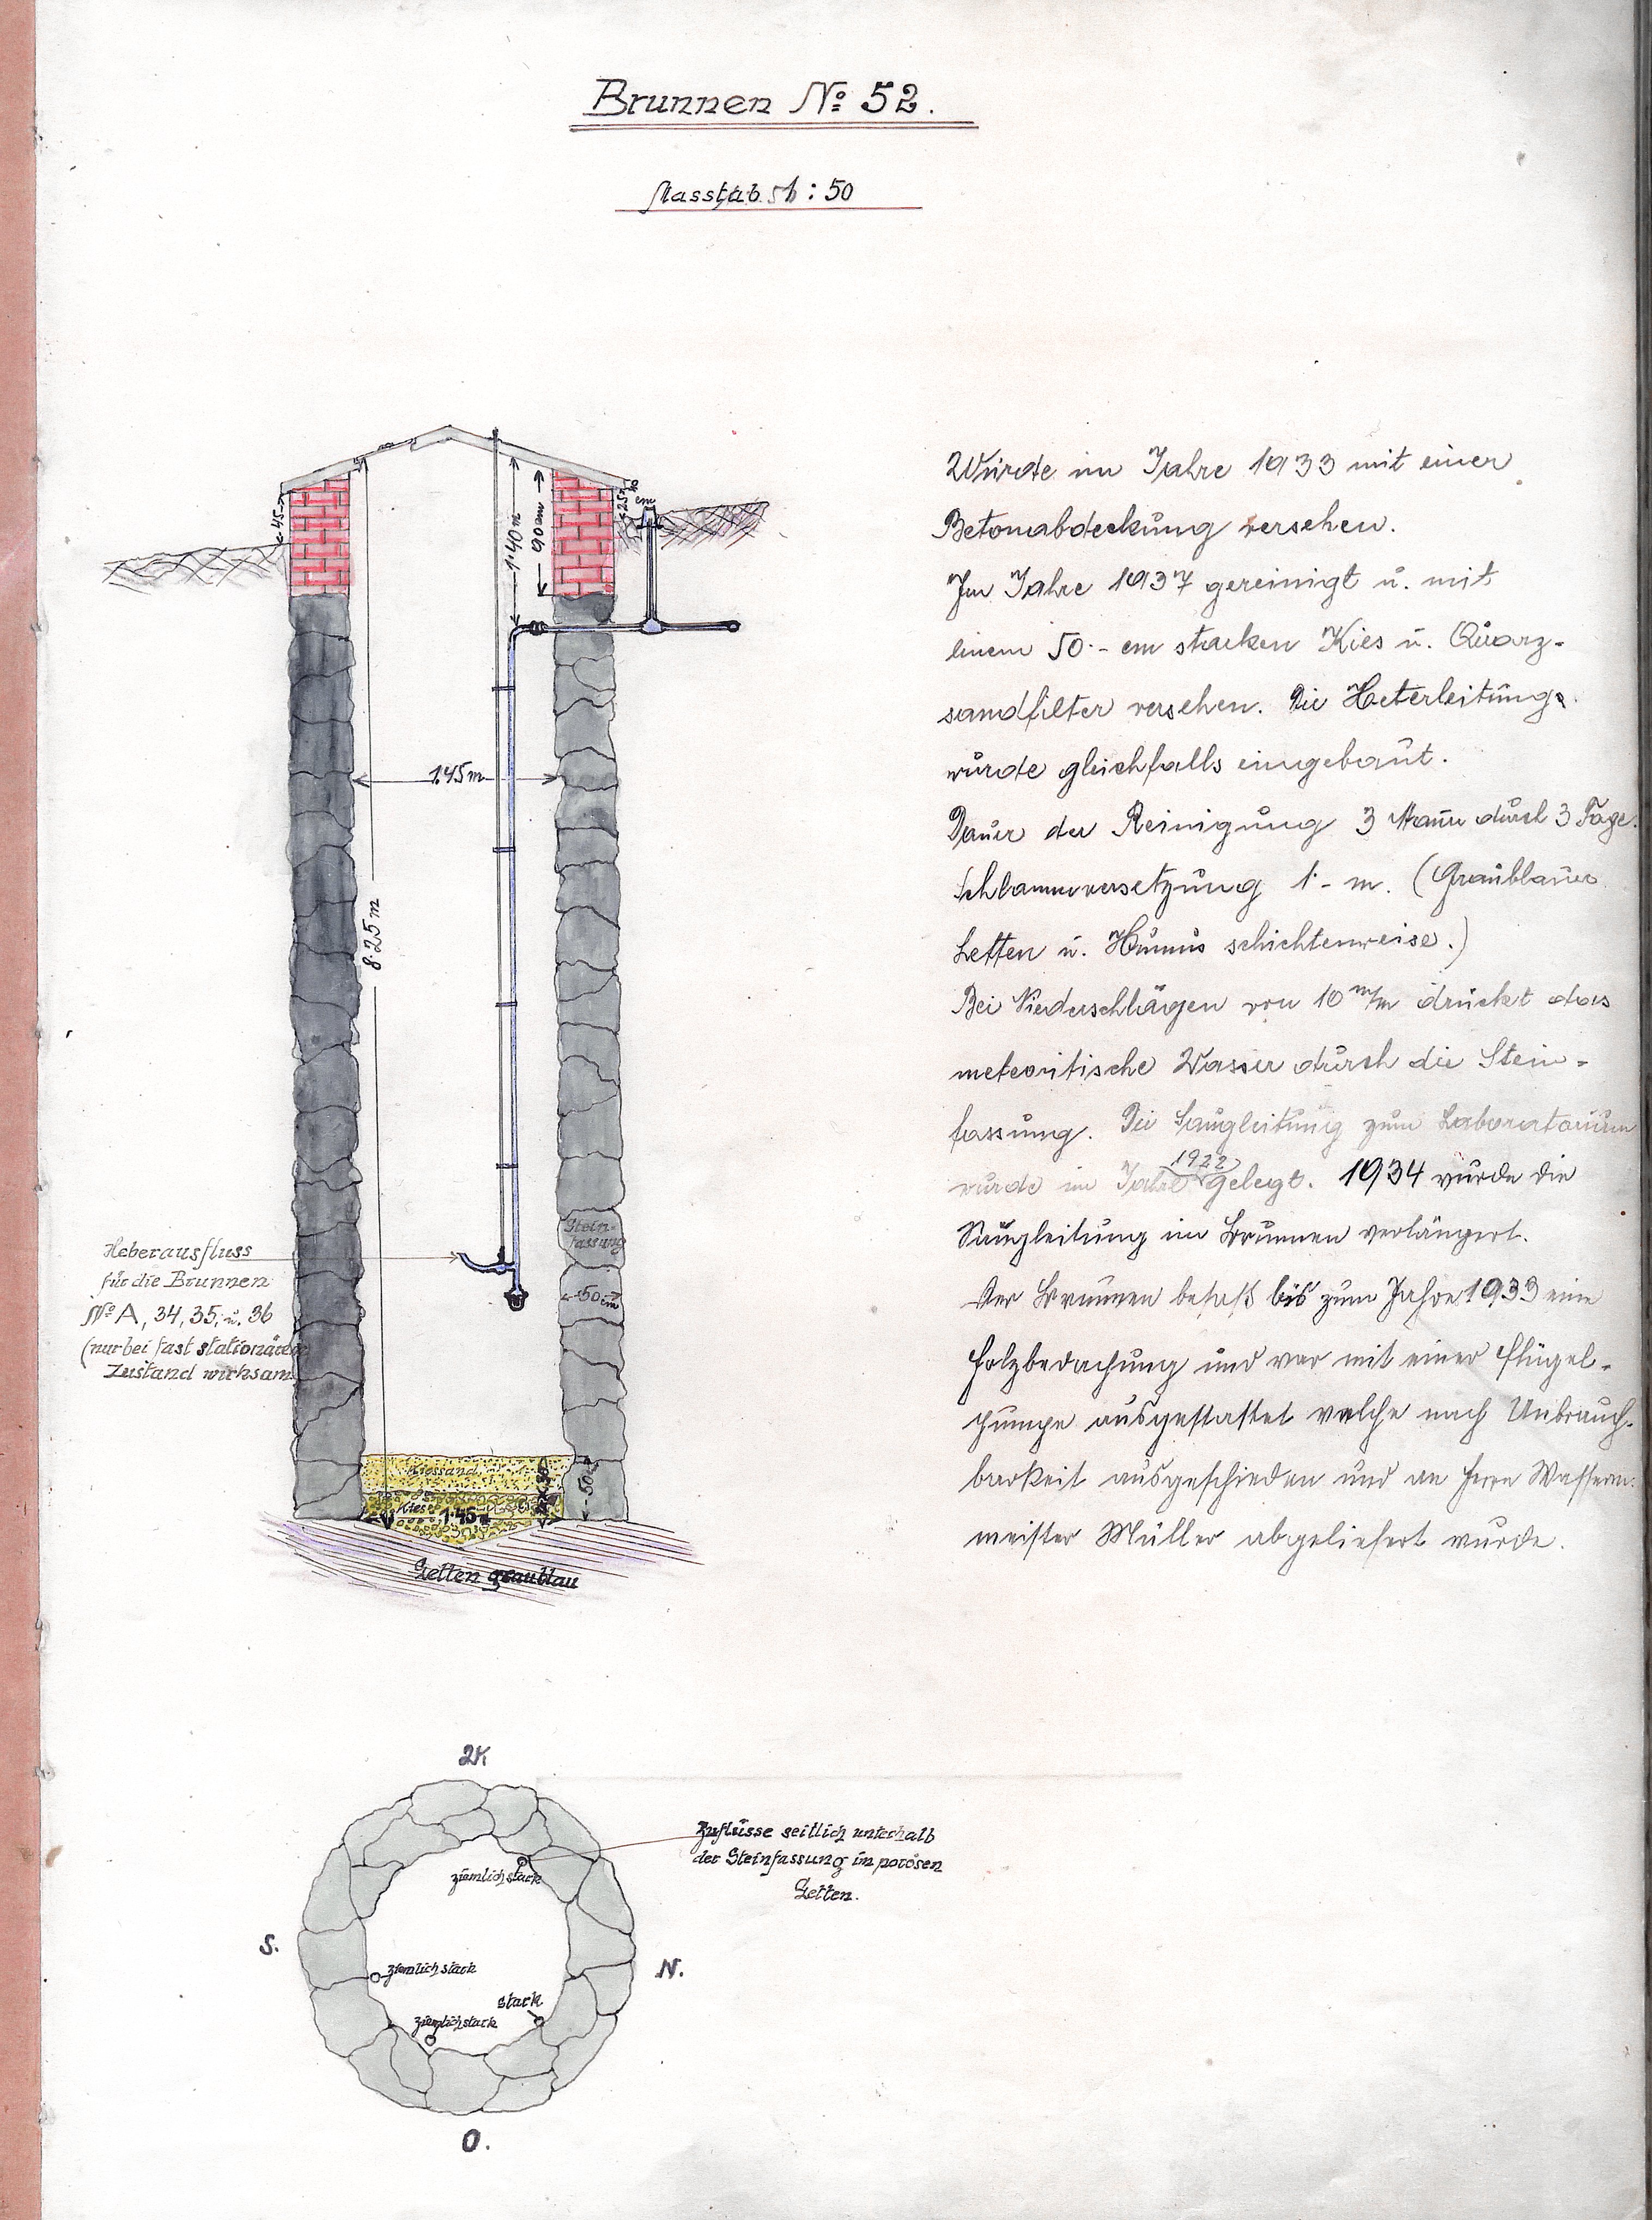 Brunnen No 52.
Masstab 1 : 50
45
1·40 m
90 cm
25
cm
Wurde im Jahre 1933 mit einer
Betonabdeckung versehen.
Im Jahre 1937 gereinigt u. mit
einem 50·- cm starken Kies u. Quarz-
sandfilter versehen. Die Heberleitung
wurde gleichfalls eingebaut.
Dauer der Reinigung 3 Mann durch 3 Tage.
Schlammversetzung 1·- m. (Graublauer
Letten u. Humus schichtenweise.)
Bei Niederschlägen von 10 m/m drückt das
meteoritische Wasser durch die Stein-
fassung. Die Saugleitung zum Laboratorium
wurde im Jahre 1922 gelegt. 1934 wurde die
Saugleitung im Brunnen verlängert.
Der Brunnen besaß bis zum Jahre 1933 eine
Holzbedachung und war mit einer Flügel-
pumpe ausgestattet welche nach Unbrauch-
barkeit ausgeschieden und an Herrn Wasserm.
meister Müller abgeliefert wurde.
1.45 m
8·25 m
Stein-
fassung
50 cm
Heberausfluss
für die Brunnen
No A, 34, 35, u. 36
(nur bei fast stationären
Zustand wirksam
Kiessand
Kies
1·45 m
50
Letten graublau
S.
N.
O.
ziemlich stark
ziemlich stark
ziemlich stark
stark
Zuflüsse seitlich unterhalb
der Steinfassung im porösen
Letten.